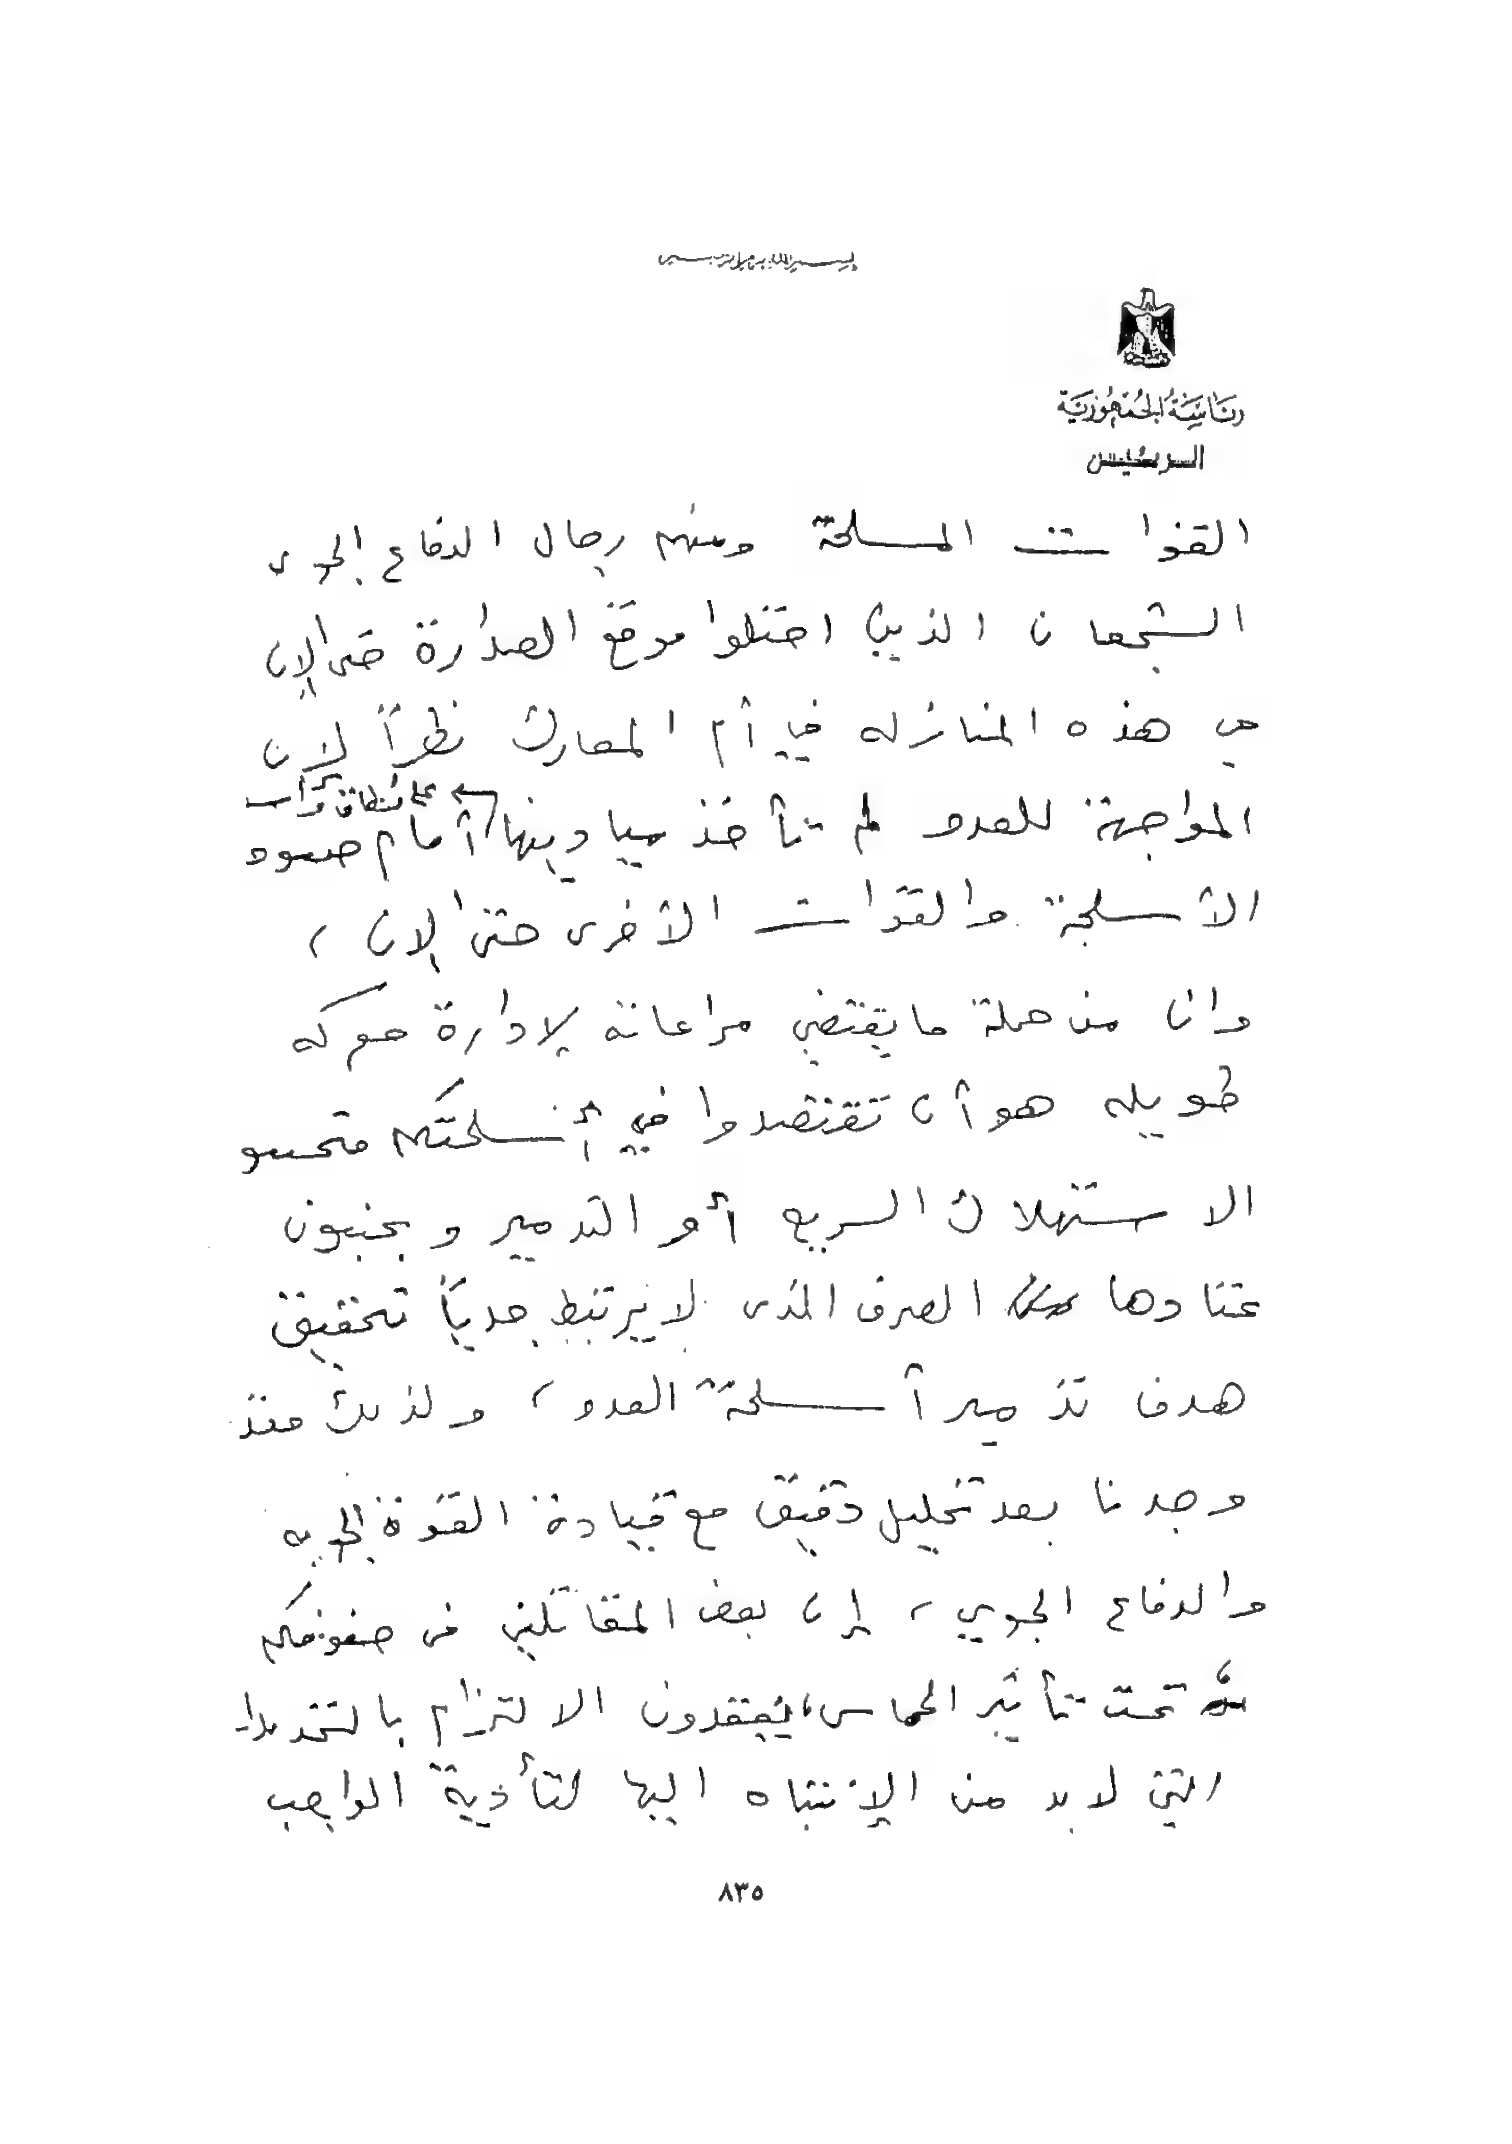 بسم الله الرحمن الرحيم
رئاسة الجمهورية
الرئيس
القوات المسلحة ومنهم رجال الدفاع الجوي
الشجعان الذين احتلوا موقع الصدارة حتى الان
في هذه المنازله في أم المعارك نظراً لان
على نطاق
المواجهة للعدو لم تأخذ ميادينها أمام صنوف
الأسلحة والقوات الأخرى حتى الان ،
وان من جملة ما يقتضي مراعاته لإدارة معركه
طويله هو أن تقتصدوا في أسلحتكم
الاستهلاك السريع أو التدمير و
عتادها الصرف الذي لا يرتبط جدياً تحقيق
هدف تدمير أسلحة العدو ، ولذلك فقد
وجدنا بعد تحليل دقيق مع قيادة القوة الجويه
والدفاع الجوي ، إن بعض المقاتلين في صفوفكم
تحت تأثير الحماس، يفتقدون الالتزام بالتحديدات
التي لا بد من الإنتباه اليها لتأدية الواجب
٨٣٥